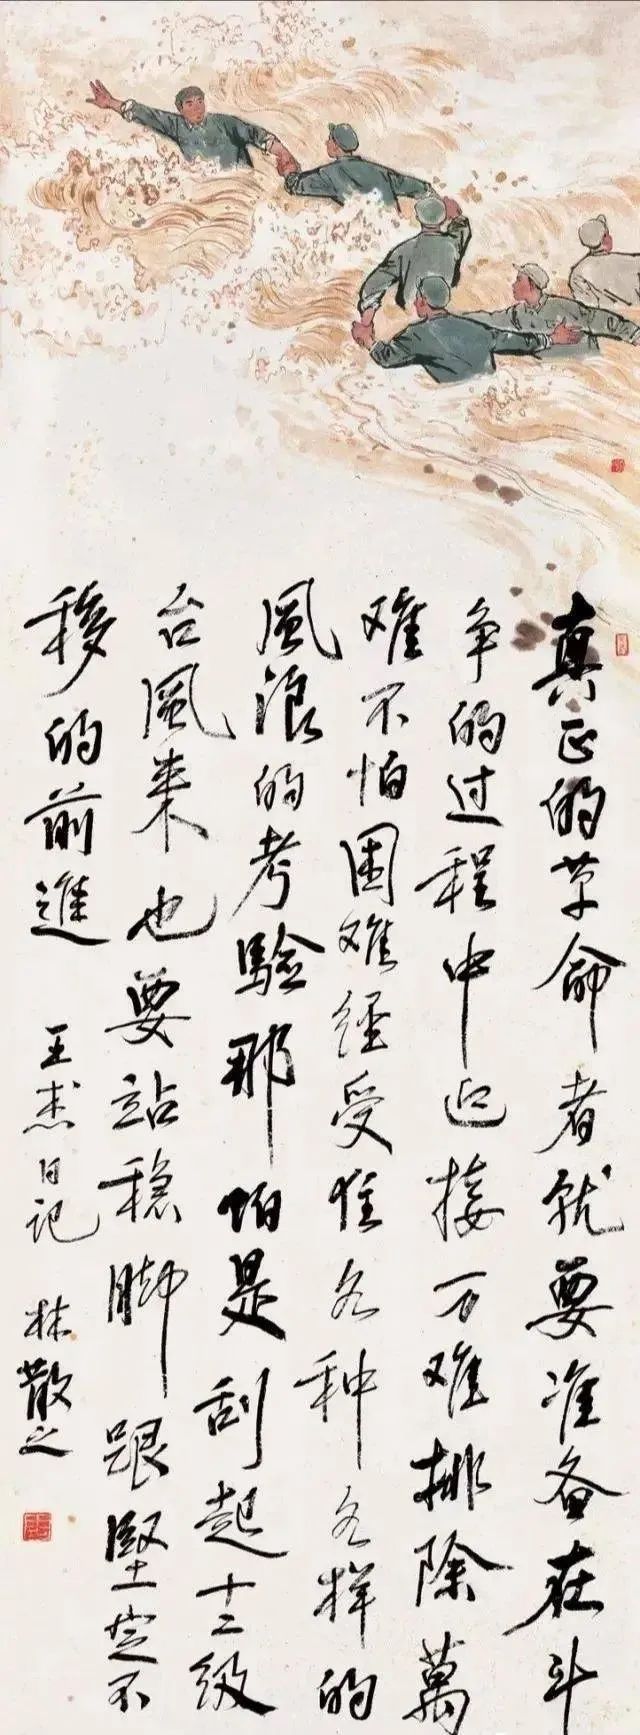 真正的革命者就要准备在斗
争的过程中迎接万难排除萬
难不怕困难经受住各种各样的
風浪的考驗那怕是刮起十二级
台風来也要站稳脚跟堅定不
移的前進
王杰日记 林散之